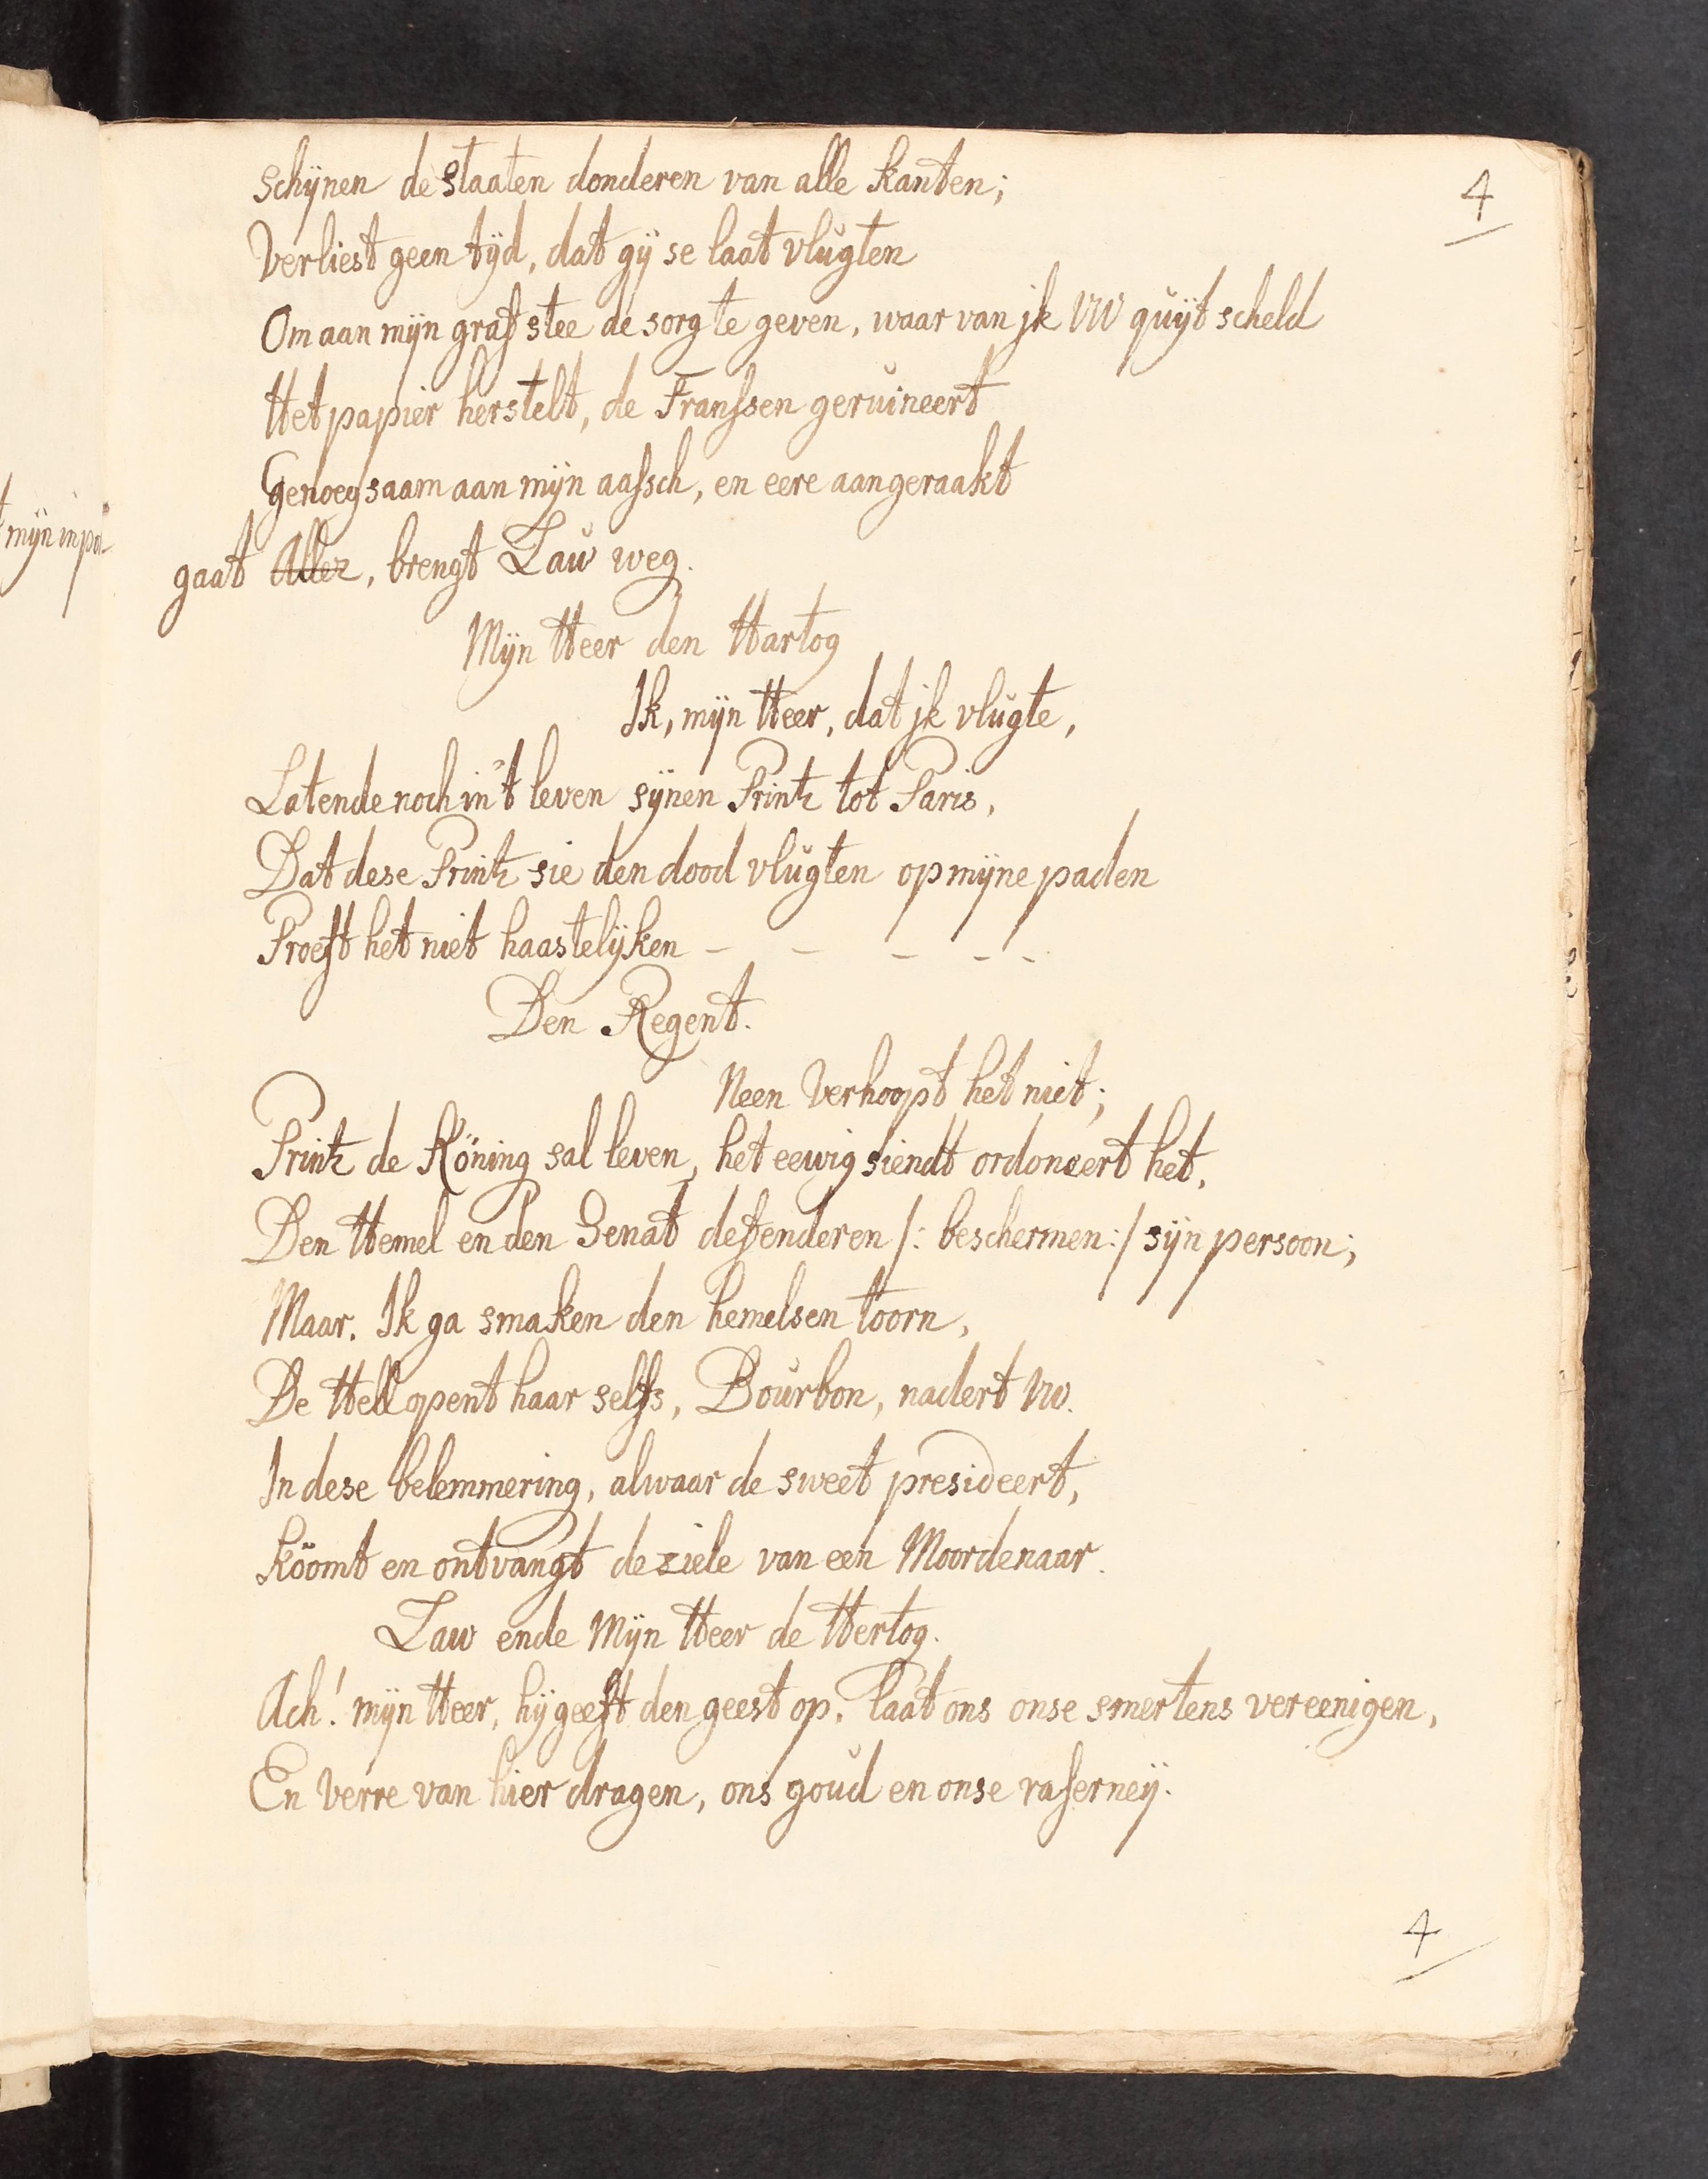 4
schÿnen de staaten donderen van alle kanten;
Verliest geen tÿd, dat gÿ se laat vlugten
Om aan mÿn graf stee de sorg te geven, waar van jk UW quÿt scheld
Het papier herstelt, de Franssen geruineert
Genoegsaam aan mÿn aassch, en eere aangeraakt
gaat Allez, brengt Lau weg.
Mÿn Heer den Hartog
Ik, mÿn Heer, dat jk vlugte,
Latende noch in't leven sÿnen Printz tot Paris,
Dat dese Printz sie den dood vlugten op mÿne paden
Proeft het niet haastelÿken – – – – –
Den Regent.
Neen Verhoopt het niet;
Printz de Köning sal leven, het eewig siendt ordoneert het,
Den Hemel en den Senat defenderen /: beschermen :/ sÿn persoon;
Maar. Ik ga smaken den hemelsen toorn,
De Hell opent haar selfs, Bourbon, nadert Uw.
In dese belemmering, alwaar de sweet presideert,
Köomt en ontvangt de ziele van een Moordenaar.
Law ende Mÿn Heer de Hertog.
Ach! mÿn Heer, hÿ geeft den geest op. laat ons onse smertens vereenigen,
En verre van hier dragen, ons goud en onse raserneÿ.
4